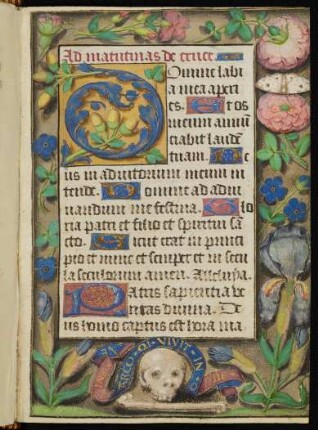 Ad matutinas de cruce
Domine labi
a mea aperi
es. Et os
meum annun
ciabit laudē
tuam. De
us in adiutorium meum in
tende. Domine ad adiu
uandum me festina. Glo
ria patri et filio et spiritui sā
cto. Sicut erat in princi
pio et nunc et semper et in secu
la seculorum amen. Alleluya.
Patris sapientia ve
ritas diuina. De
us homo captus est hora ma
QI VIVIT IN